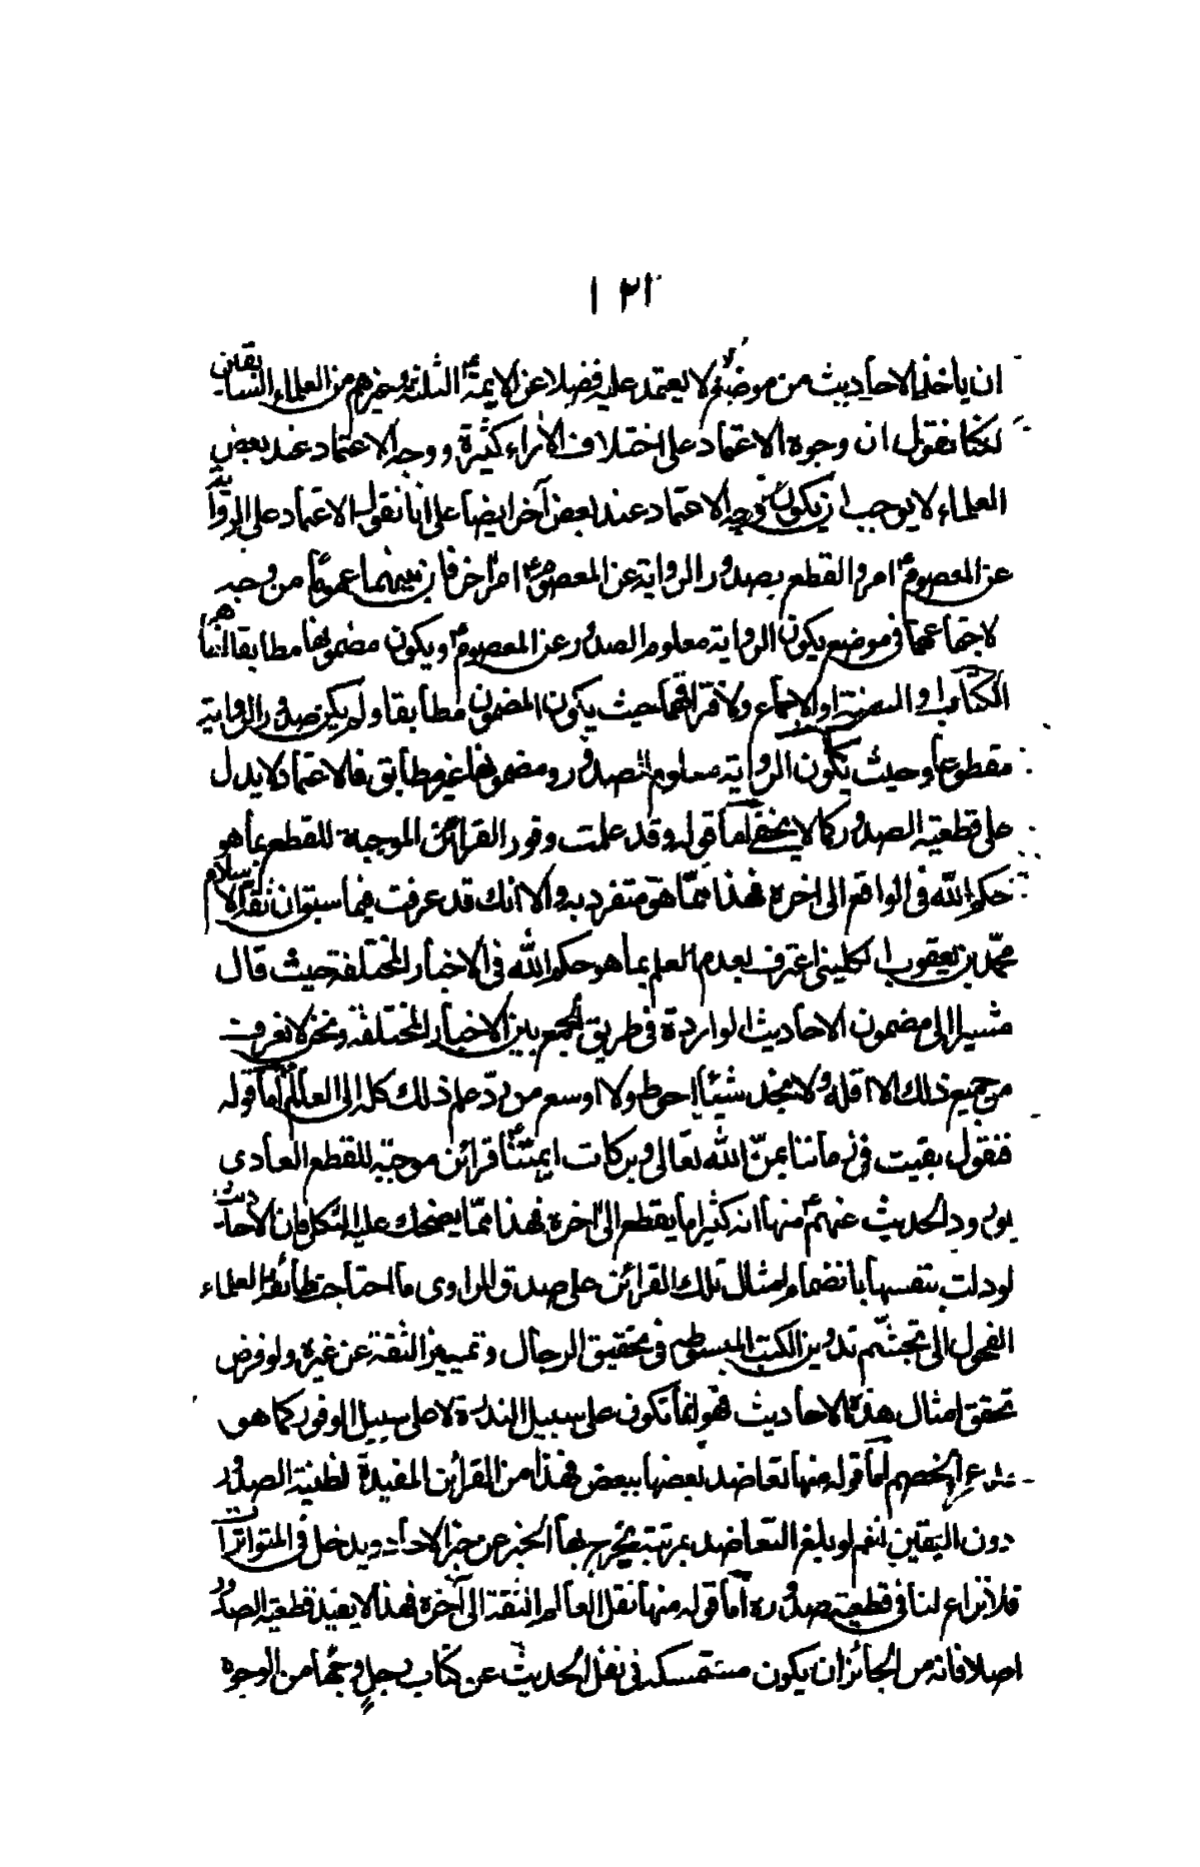 ١٢١
ان يأخذ الاحاديث من موضع لا يعتمد عليه فضلا عن الايمة الثلثة وغيرهم من العلماء السابقين
لكنا نقول ان وجوه الاعتماد على اختلاف الآراء كثيرة ووجه الاعتماد عند بعض
العلماء لا يوجب ان يكون وجه الاعتماد عند بعض آخر ايضا على انا نقول الاعتماد على الرواية
عن المعصوم امر والقطع بصدور الرواية عن المعصوم امر آخر فان بينهما عموما من وجه
لاجتماعهما في موضع يكون الرواية معلوم الصدور عن المعصوم ويكون مضمونها مطابقا
الكتاب او السنة او الاجماع ولافتراقهما حيث يكون المضمون مطابقا ولم يكن صدور الرواية
مقطوعا وحيث يكون الرواية معلوم الصدور ومضمونها غير مطابق فالاعتماد لا يدل
على قطعية الصدور كما لا يخفى اما قوله وقد علمت وفور القرائن الموجبة للقطع بما هو
حكم الله في الواقع الى اخره فهذا مما هو متفرد به والا انك قد عرفت فيما سبق ان ثقة الاسلام
محمد بن يعقوب الكليني اعترف بعدم العلم بما هو حكم الله في الاخبار المختلفة حيث قال
مشيرا الى مضمون الاحاديث الواردة في طريق الجمع بين الاخبار المختلفة ونحن لا نعرف
من جميع ذلك الا اقله ولا نجد شيئا احوط ولا اوسع من رد علم ذلك كله الى العالم اما قوله
فنقول بقيت في زماننا بمن الله تعالى وبركات ايمتنا قرائن موجبة للقطع العادى
بورود الحديث عنهم منها انه كثيرا ما يقطع الى آخره فهذا مما يضحك عليه الثكلى فان الاحاديث
لو دلت بنفسها بانضمام امثال تلك القرائن على صدق الراوى ما احتاجت طائفة العلماء
الفحول الى تجشم تدوين الكتب المبسوطة في تحقيق الرجال وتمييز الثقة عن غيره ولو فرض
تحقق امثال هذه الاحاديث فهو انما تكون على سبيل الندرة لا على سبيل الوفور كما هو
مدعى الخصم اما قوله منها تعاضد بعضها ببعض فهذا من القرائن المفيدة لظنية الصدور
دون اليقين نعم لو بلغ التعاضد بمرتبة يخرج بها الخبر عن خبر الاحاد ويدخل في المتواترات
فلا نزاع لنا في قطعية صدوره اما قوله منها نقل العالم الثقة الى آخره فهذا لا يفيد قطعية الصدور
اصلا فانه من الجائز ان يكون مستمسكه في نقل الحديث عن كتاب رجل وجها من الوجوه